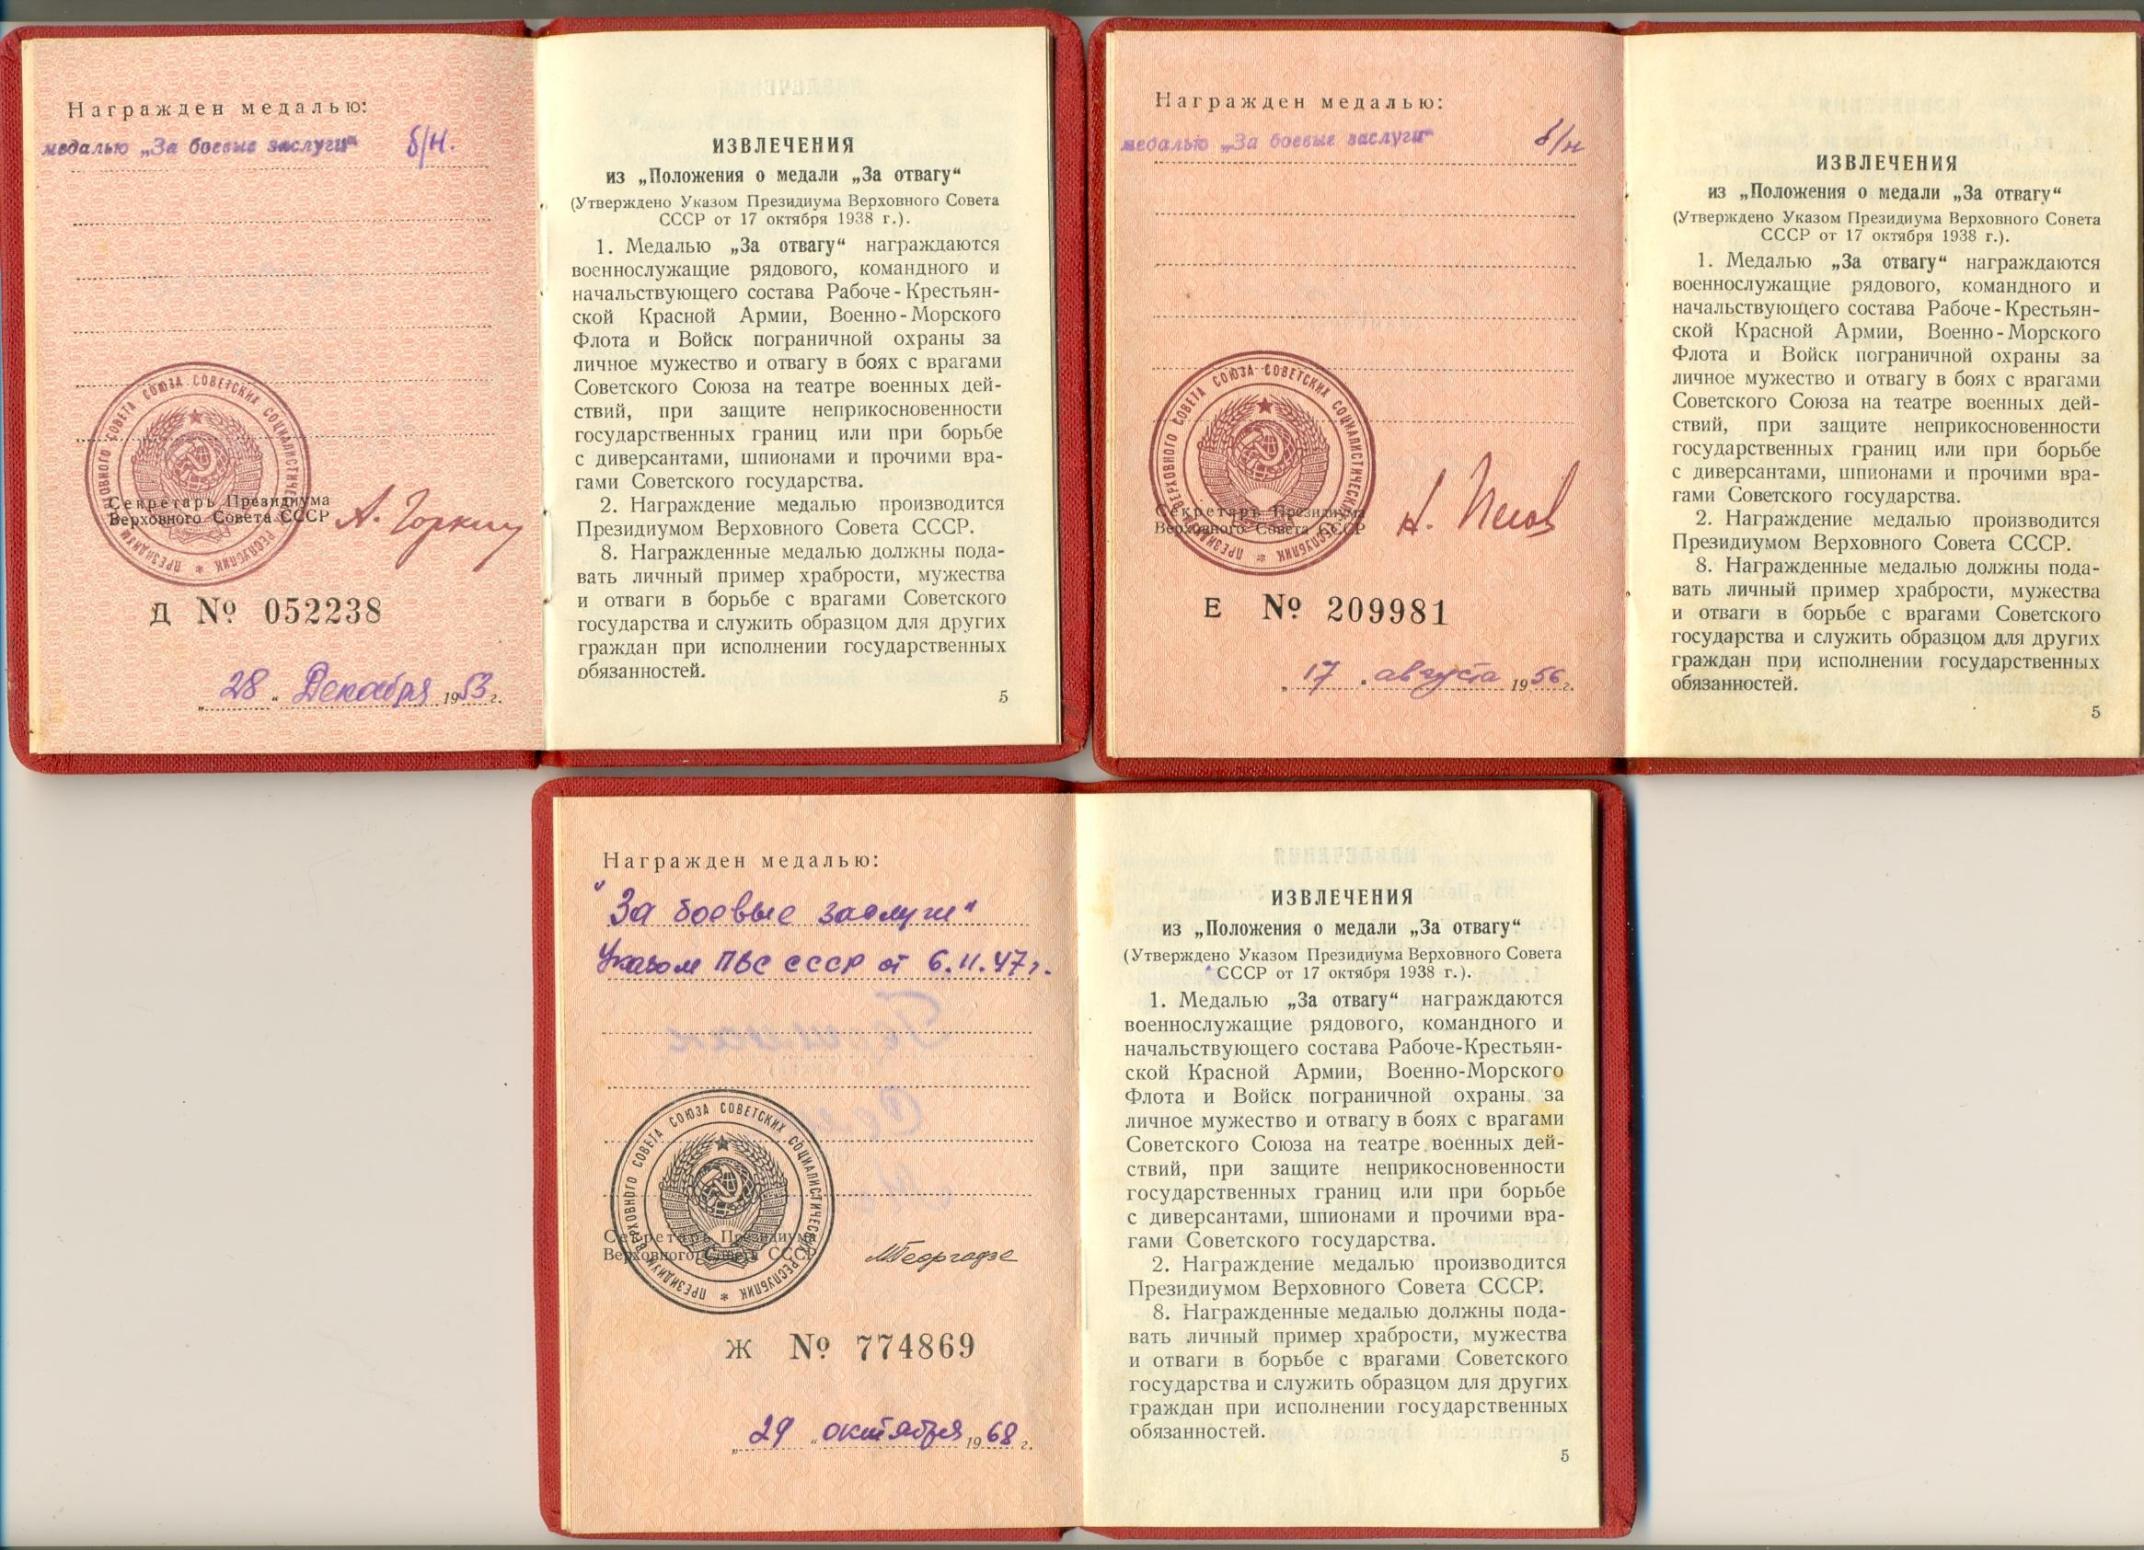 Награжден медалью:
медалью „За боевые заслуги“ б/н.
ПРЕЗИДИУМ ВЕРХОВНОГО СОВЕТА СОЮЗА СОВЕТСКИХ СОЦИАЛИСТИЧЕСКИХ РЕСПУБЛИК *
Секретарь Президиума
Верховного Совета СССР А. Горкин
Д № 052238
„28“ Декабря 1953 г.
ИЗВЛЕЧЕНИЯ
из „Положения о медали „За отвагу“
(Утверждено Указом Президиума Верховного Совета
СССР от 17 октября 1938 г.).
1. Медалью „За отвагу“ награждаются
военнослужащие рядового, командного и
начальствующего состава Рабоче-Крестьян-
ской Красной Армии, Военно-Морского
Флота и Войск пограничной охраны за
личное мужество и отвагу в боях с врагами
Советского Союза на театре военных дей-
ствий, при защите неприкосновенности
государственных границ или при борьбе
с диверсантами, шпионами и прочими вра-
гами Советского государства.
2. Награждение медалью производится
Президиумом Верховного Совета СССР.
8. Награжденные медалью должны пода-
вать личный пример храбрости, мужества
и отваги в борьбе с врагами Советского
государства и служить образцом для других
граждан при исполнении государственных
обязанностей.
5
Награжден медалью:
медалью „За боевые заслуги“ б/н
ПРЕЗИДИУМ ВЕРХОВНОГО СОВЕТА СОЮЗА СОВЕТСКИХ СОЦИАЛИСТИЧЕСКИХ РЕСПУБЛИК *
Секретарь Президиума
Верховного Совета СССР
Е № 209981
„17“ августа 1956 г.
ИЗВЛЕЧЕНИЯ
из „Положения о медали „За отвагу“
(Утверждено Указом Президиума Верховного Совета
СССР от 17 октября 1938 г.).
1. Медалью „За отвагу“ награждаются
военнослужащие рядового, командного и
начальствующего состава Рабоче-Крестьян-
ской Красной Армии, Военно-Морского
Флота и Войск пограничной охраны за
личное мужество и отвагу в боях с врагами
Советского Союза на театре военных дей-
ствий, при защите неприкосновенности
государственных границ или при борьбе
с диверсантами, шпионами и прочими вра-
гами Советского государства.
2. Награждение медалью производится
Президиумом Верховного Совета СССР.
8. Награжденные медалью должны пода-
вать личный пример храбрости, мужества
и отваги в борьбе с врагами Советского
государства и служить образцом для других
граждан при исполнении государственных
обязанностей.
5
Награжден медалью:
"За боевые заслуги"
Указом ПВС СССР от 6.11.47г.
ПРЕЗИДИУМ ВЕРХОВНОГО СОВЕТА СОЮЗА СОВЕТСКИХ СОЦИАЛИСТИЧЕСКИХ РЕСПУБЛИК *
Секретарь Президиума
Верховного Совета СССР М Георгадзе
Ж № 774869
„29“ октября 1968 г.
ИЗВЛЕЧЕНИЯ
из „Положения о медали „За отвагу“
(Утверждено Указом Президиума Верховного Совета
СССР от 17 октября 1938 г.).
1. Медалью „За отвагу“ награждаются
военнослужащие рядового, командного и
начальствующего состава Рабоче-Крестьян-
ской Красной Армии, Военно-Морского
Флота и Войск пограничной охраны за
личное мужество и отвагу в боях с врагами
Советского Союза на театре военных дей-
ствий, при защите неприкосновенности
государственных границ или при борьбе
с диверсантами, шпионами и прочими вра-
гами Советского государства.
2. Награждение медалью производится
Президиумом Верховного Совета СССР.
8. Награжденные медалью должны пода-
вать личный пример храбрости, мужества
и отваги в борьбе с врагами Советского
государства и служить образцом для других
граждан при исполнении государственных
обязанностей.
5